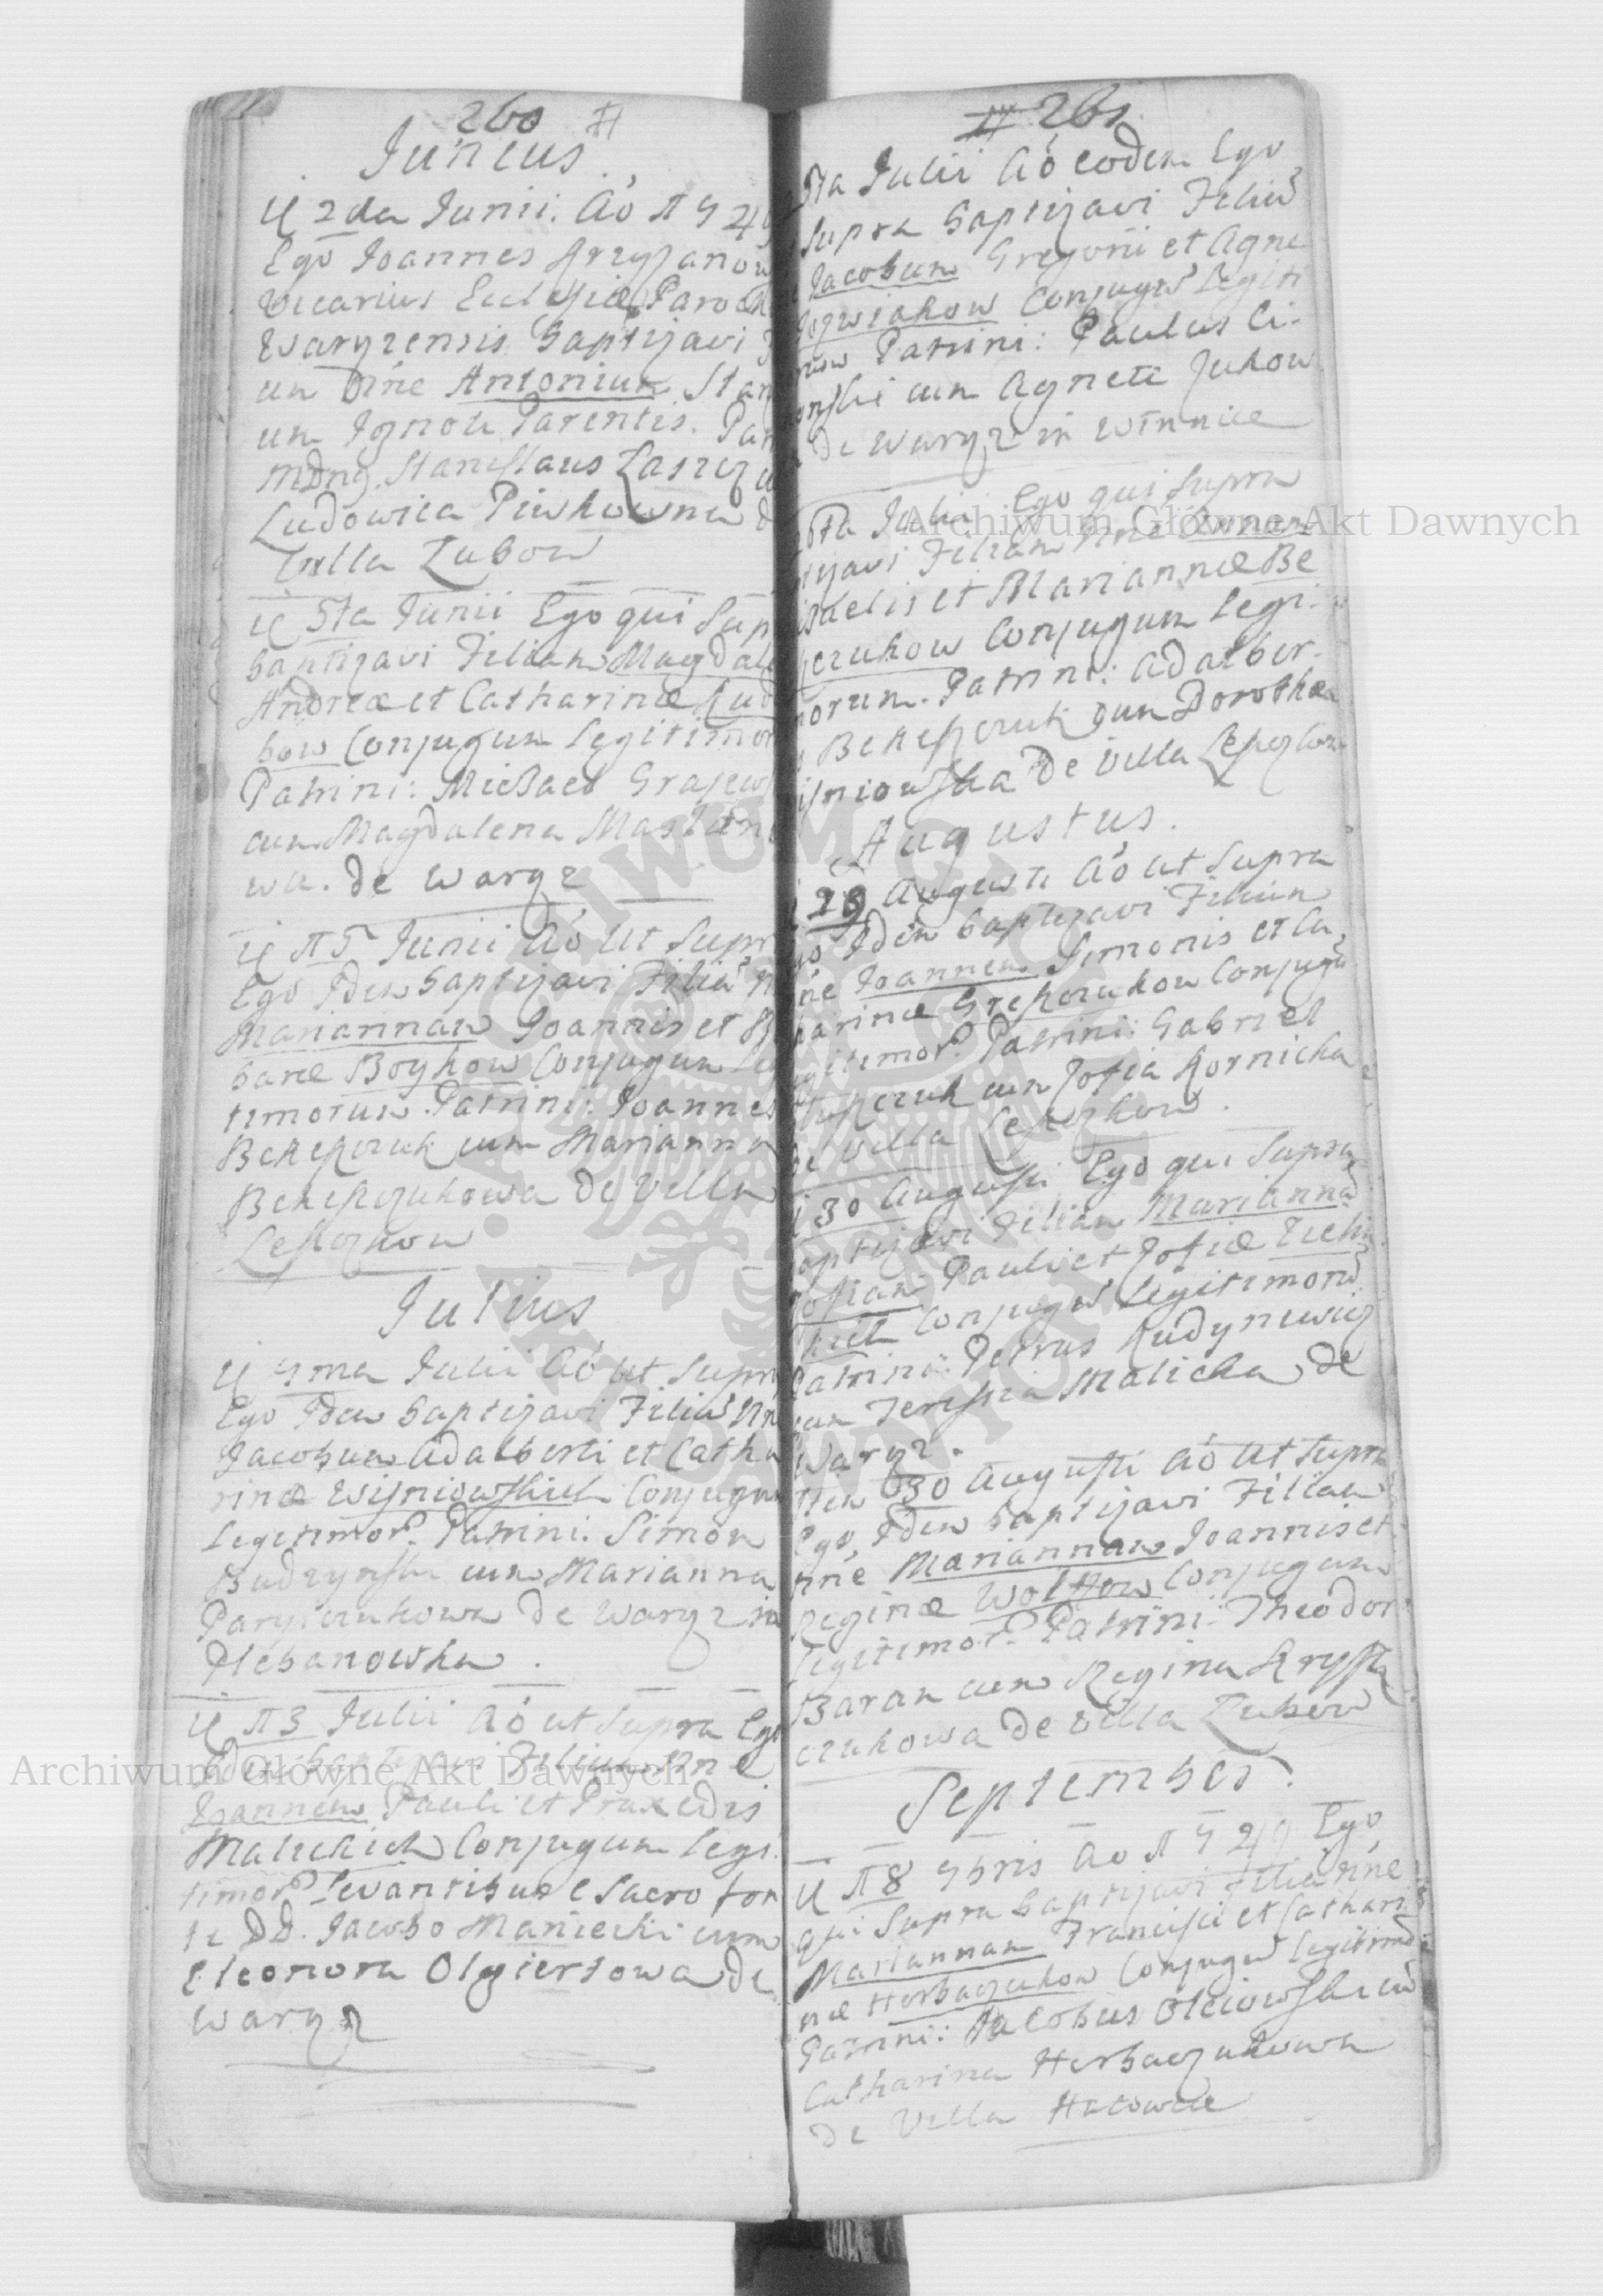 260
Junius
2da Junii. Aő 1749
Ego Joannes
Vicarius Ecclesiæ Paroch
Waryzensis Baptizavi
um Nne Antonium Stan
um Ignoti Parentis. Pat
MDnus. Stanislaus Laszcz
Ludowica Piwkowna d
Villa Zubow
5ta Junii Ego qui Sup
Baptizavi Filiam Magdale
Andreæ et Catharinæ Rud
bow Conjugum Legitimor
Patrini: Michael Grajews
cum Magdalena
wa. de Waryz
15 Junii Aő ut Supr
Ego Idem Baptizavi Filia N
Mariannam Joannis et B
baræ Boykow Conjugum Leg
timorum. Patrini: Joannes
Bekieszczuk cum Marianna
de Villa
Leszczkow
Julius
7ma Julii Aő ut Supra
Ego Idem Baptizavi Filiu Nn
Jacobum Adalberti et Catha
rinæ Wisniowskich Conjugum
Legitimor. Patrini. Simon
Budzynski cum Marianna
de Waryz in
Plebanowska.
13 Julii Aő ut Supra Ego
Idem Baptizavi Filium Nne
Joannem Pauli et Praxedis
Malickich Conjugum Legi
timor. Levantibus e Sacro fon
te DD. Jacobo Maniecki cum
Eleonora Olgiertowa de
Waryz
261
5ta Julii Aő eodem Ego
Supra Baptizavi Filiu
Jacobum Gregorii et Agne
Conjugu Legiti
Patrini: Paulus Ci-
onski cum Agnete Jukow
de Waryz in Winnice
Julii Ego qui Supra
tizavi Filiam Nne Annam
haelis et Mariannæ Be
szczukow Conjugum Legi-
morum. Patrini: Adalber-
Bekieszczuk cum Dorothea
isniowska de Villa Leszczkow
Augustus.
29 Augusti Aő ut Supra
go Idem Baptizavi Filium
Nne Joannem Simonis et Ca
harinæ Conjugu
gitimor. Patrini: Gabriel
cum Zofia Kornicka
de Villa Leszczkow.
30 Augusti Ego qui Supra
aptizavi Filiam Mariannã
Pauli et Zofiæ
Conjugu Legitimoru
Patrini: Petrus Rudyniewicz
cum Teressia Malicka de
Waryz.
Item 30 Augusti Aő ut Supra
Ego, Idem Baptizavi Filiam
Nne Mariannam Joannis et
Reginæ Conjugum
Legitimor. Patrini: Theodor
Baran cum Regina Kryszta
czukowa de Villa Zubow
September.
18 7bris Aő 1749 Ego
qui Supra Baptizavi Filia Nne
Mariannam Francisci et Cathari
næ Herbaczukow Conjugu Legitimo
Patrini: Jacobus Olciowski cu
Catharina Herbaczukowa
de Villa
Archiwum Główne Akt Dawnych
Archiwum Główne Akt Dawnych